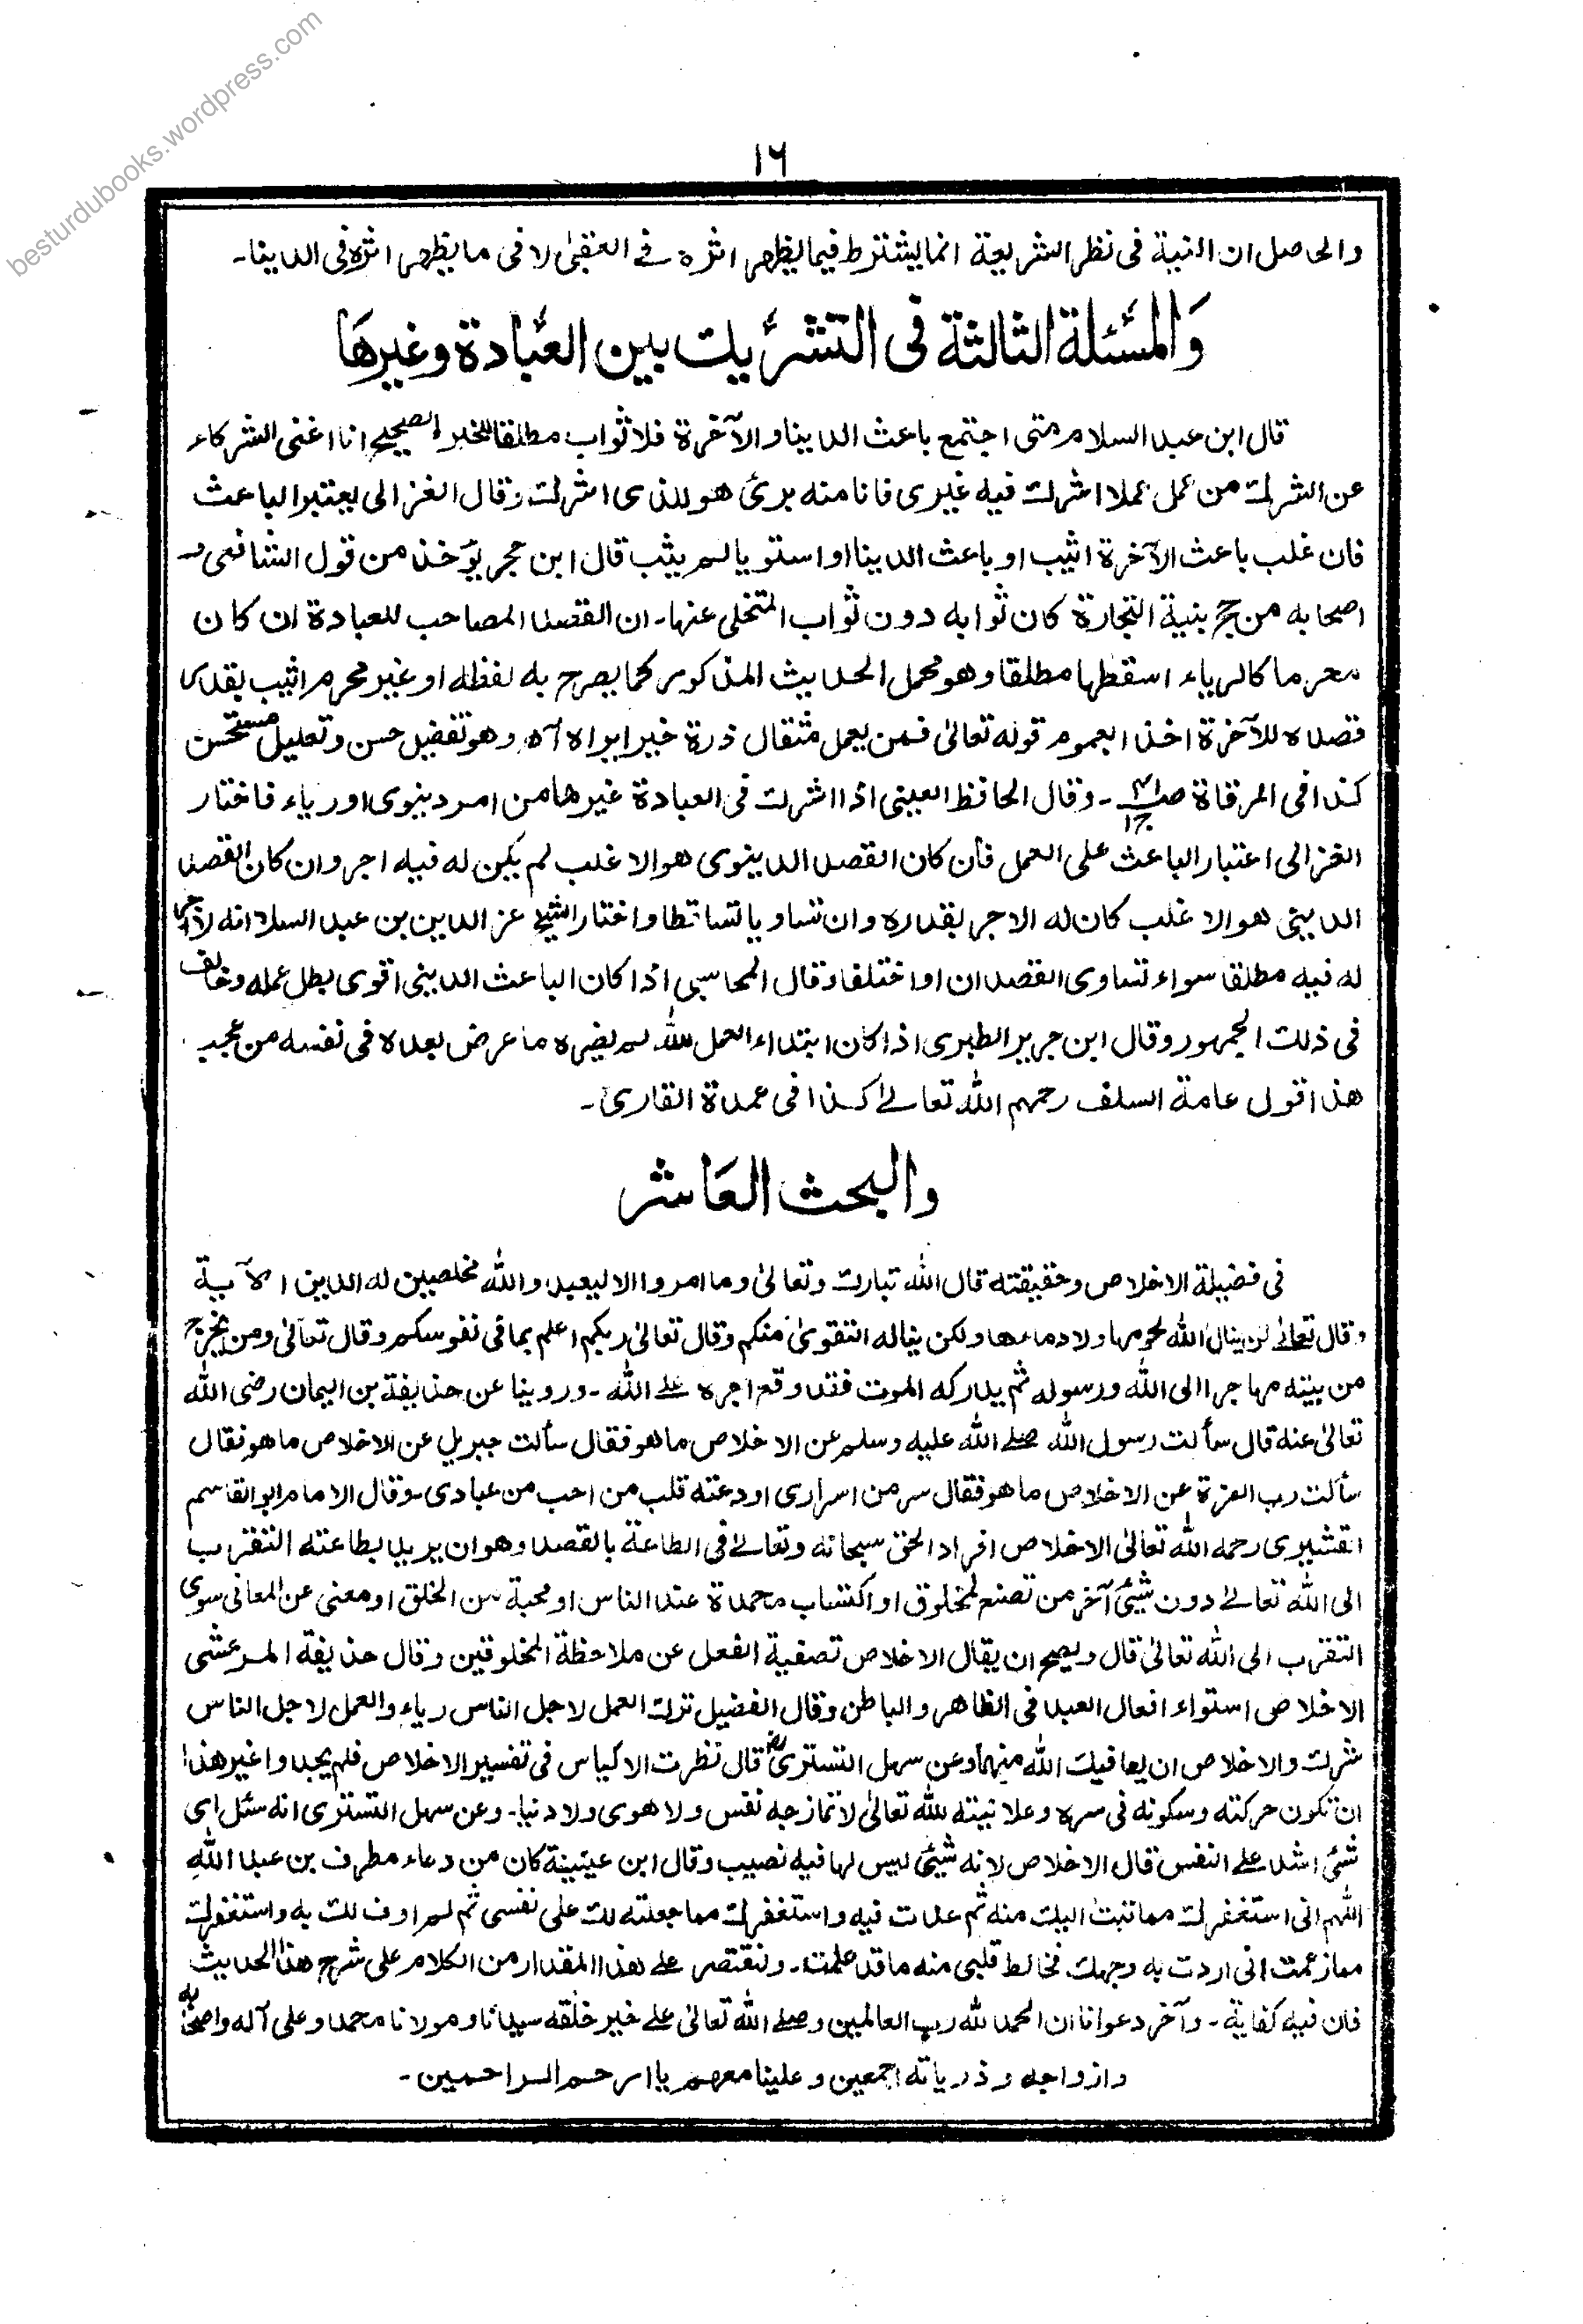 besturdubooks.wordpress.com
١٦
والحاصل ان النية فى نظر الشريعة انما يشترط فيما يظهر اثره فے العقبىٰ لا فى ما يظهر اثره فى الدينا۔
وَالمسئلة الثالثة فى التشريك بين العبادة وغيرها
قال ابن عبد السلام متى اجتمع باعث الدينا والآخرة فلا ثواب مطلقا للخبر الصحيح انا اغنى الشركاء
عن الشرك من عمل عملا اشرك فيه غيرى فانا منه برئ هو للذى اشرك وقال الغزالى يعتبر الباعث
فان غلب باعث الآخرة اثيب او باعث الدينا او استويا لم يثب قال ابن حجر يؤخذ من قول الشافعى و
اصحابه من حج بنية التجارة كان ثوابه دون ثواب المتخلى عنها۔ ان القصد المصاحب للعبادة ان كان
محرما كالرياء اسقطها مطلقا وهو محمل الحديث المذكور كما يصرح به لفظه او غير محرم اثيب بقدر
قصده للآخرة اخذا بعموم قوله تعالىٰ فمن يعمل مثقال ذرة خيرا يره اه وهو تفضيل حسن وتعليل مستحسن
كذا فى المرقاة ص٤١ ج١۔ وقال الحافظ العينى اذا اشرك فى العبادة غيرها من امر دينوى او رياء فاختار
الغزالى اعتبار الباعث على العمل فان كان القصد الدينوى هو الاغلب لم يكن له فيه اجر وان كان القصد
الدينى هو الاغلب كان له الاجر بقدره وان تساويا تساقطا واختار الشيخ عز الدين بن عبد السلام انه لا اجر
له فيه مطلقا سواء تساوى القصدان او اختلفا وقال المحاسبى اذا كان الباعث الدينى اقوى بطل عمله وخالف
فى ذلك الجمهور وقال ابن جرير الطبرى اذا كان ابتداء العمل لله لم يضره ما عرض بعده فى نفسه من عجب
هذا قول عامة السلف رحمهم الله تعالےٰ كذا فى عمدة القارئ۔
والبحث العاشر
فى فضيلة الاخلاص وحقيقته قال الله تبارك وتعالىٰ وما امروا الا ليعبدوا الله مخلصين له الدين الآية
وقال تعالىٰ لن ينال الله لحومها ولا دماءها ولكن يناله التقوىٰ منكم وقال تعالىٰ ربكم اعلم بما فى نفوسكم وقال تعالىٰ ومن يخرج
من بيته مهاجرا الى الله ورسوله ثم يدركه الموت فقد وقع اجره علے الله۔ وروينا عن حذيفة بن اليمان رضى الله
تعالىٰ عنه قال سألت رسول الله صلے الله عليه وسلم عن الاخلاص ما هو فقال سألت جبريل عن الاخلاص ما هو فقال
سألت رب العزة عن الاخلاص ما هو فقال سر من اسرارى اودعته قلب من احب من عبادى۔ وقال الامام ابو القاسم
القشيرى رحمه الله تعالىٰ الاخلاص افراد الحق سبحانه وتعالےٰ فى الطاعة بالقصد وهو ان يريد بطاعته التقرب
الى الله تعالےٰ دون شيئ آخر من تصنع لمخلوق او اكتساب محمدة عند الناس او محبة من الخلق او معنى عن المعانى سوى
التقرب الى الله تعالىٰ قال ويصح ان يقال الاخلاص تصفية الفعل عن ملاحظة المخلوقين وقال حذيفة المرعشى
الاخلاص استواء افعال العبد فى الظاهر والباطن وقال الفضيل ترك العمل لاجل الناس رياء والعمل لاجل الناس
شرك والاخلاص ان يعافيك الله منهما وعن سهل التسترى قال نظرت الاكياس فى تفسير الاخلاص فلم يجدوا غير هذا
ان تكون حركته وسكونه فى سره وعلانيته لله تعالىٰ لا تمازجه نفس ولا هوى ولا دنيا۔ وعن سهل التسترى انه سئل اى
شئ اشد علے النفس قال الاخلاص لانه شيئ ليس لها فيه نصيب وقال ابن عيينة كان من دعاء مطرف بن عبد الله
اللهم انى استغفرك مما تبت اليك منه ثم عدت فيه واستغفرك مما جعلته لك على نفسى ثم لم اوف لك به واستغفرك
مما زعمت انى اردت به وجهك فخالط قلبى منه ما قد علمت۔ ونقتصر علے هذا المقدار من الكلام على شرح هذا الحديث
فان فيه كفاية۔ وآخر دعوانا ان الحمد لله رب العالمين وصلے الله تعالىٰ علے خير خلقه سيدنا ومولانا محمد وعلى آله واصحابه
وازواجه وذرياته اجمعين وعلينا معهم يا ارحم الراحمين۔